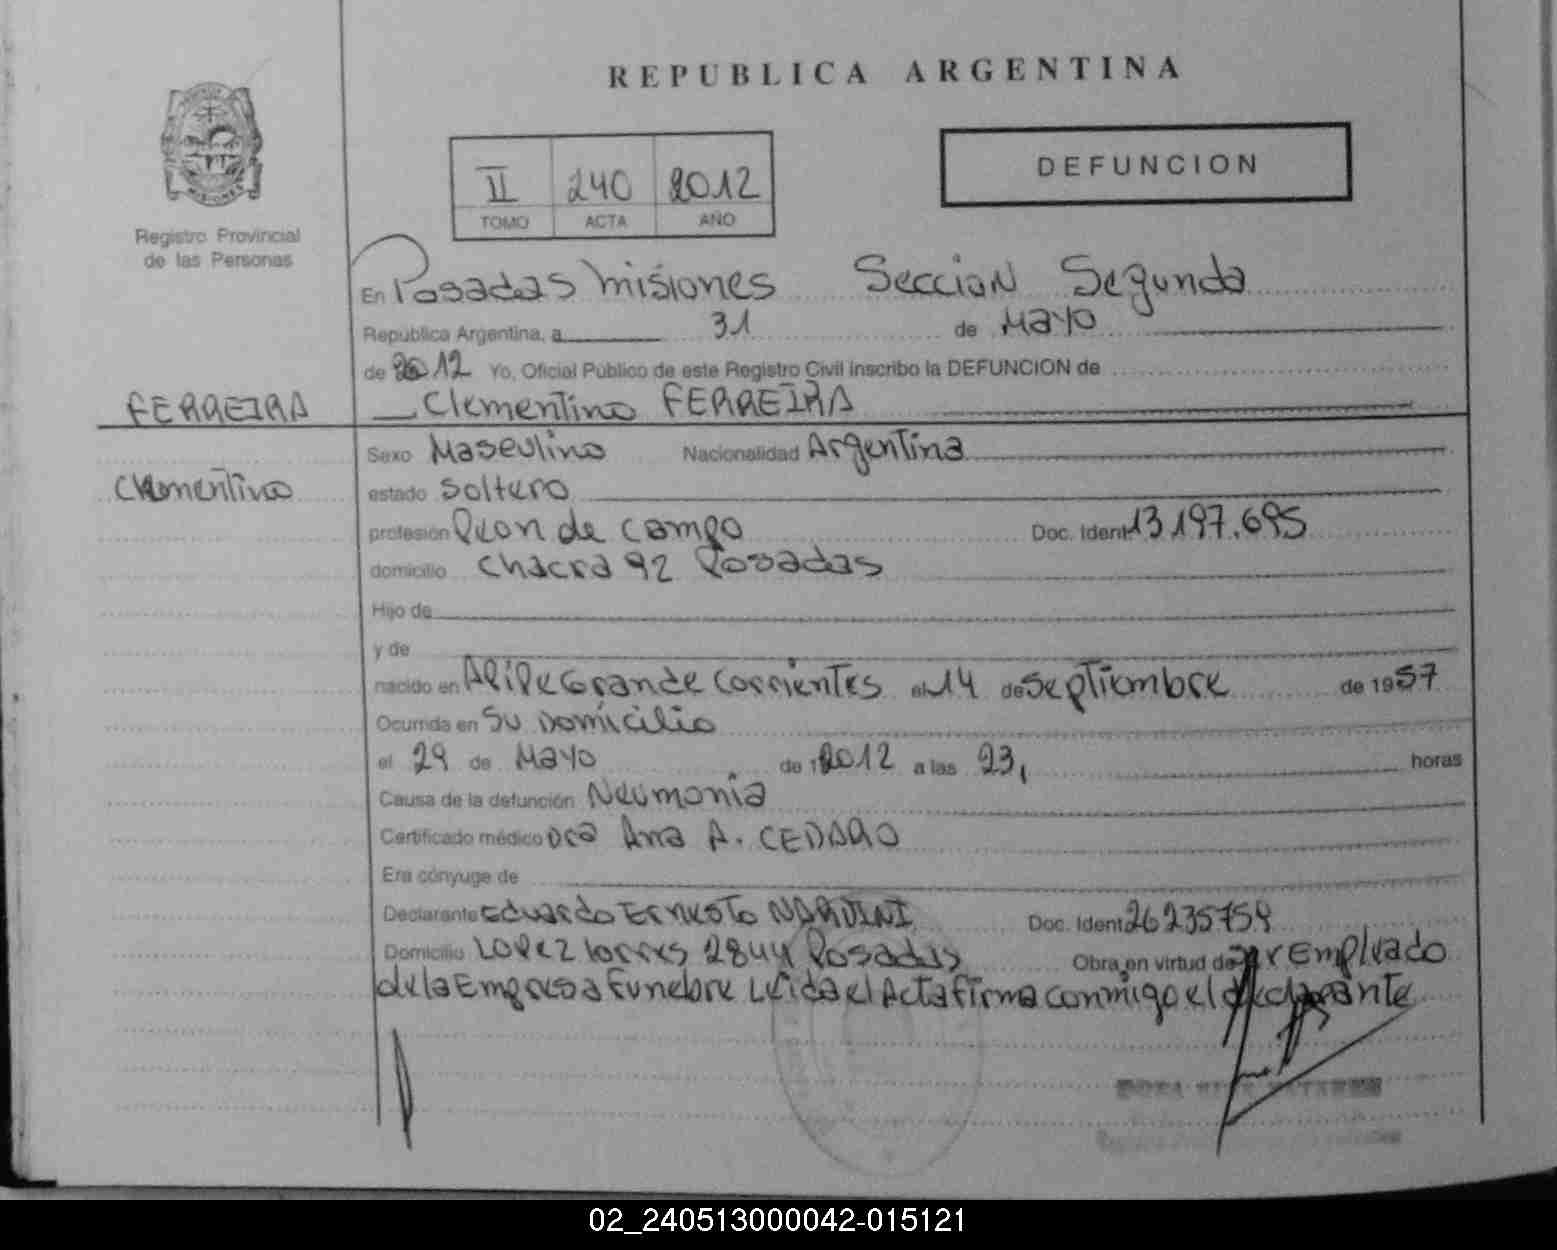 REPUBLICA ARGENTINA
DEFUNCION
II 240 2012
TOMO ACTA AÑO
Registro Provincial
de las Personas
En Posadas Misiones Seccion Segunda
Republica Argentina, a 31 de Mayo
de 2012 Yo, Oficial Público de este Registro Civil inscribo la DEFUNCION de
FERREIRA
Clementino FERREIRA
Clementino
Sexo Masculino Nacionalidad Argentina
estado Soltero
profesión Peon de campo Doc. Ident 13.197.695
domicilio Chacra 92 Posadas
Hijo de
y de
nacido en Grande Corrientes el 14 de Septiembre de 1957
Ocurrida en Su Domicilio
el 29 de Mayo de 1 2012 a las 23, horas
Causa de la defunción Neumonia
Certificado médico Dra Ana A. CEDARO
Era cónyuge de
Declarante Eduardo Ernesto Doc. Ident 26235754
Domicilio Lopez Torres 2844 Posadas Obra en virtud de ser Empleado
de la Empresa Funebre Leida el Acta firma conmigo el declarante
02_240513000042-015121